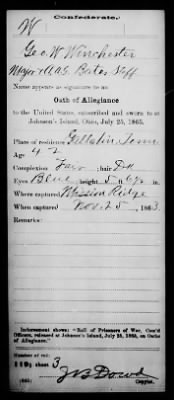 Confederate.
W
Geo. W. Winchester
Major & AAG Bates Staff
Name appears as signature to an
Oath of Allegiance
to the United States, subscribed and sworn to at
Johnson's Island, Ohio, July 25, 1865.
Place of residence Gallatin, Tenn
Age 42
Complexion Fair; hair Dk
Eyes Blue; height 5 ft. 6½ in.
Where captured Mission Ridge
When captured Nov. 25, 1863.
Remarks:
Indorsement shows: "Roll of Prisoners of War, Com'd Officers, released at Johnson's Island, July 25, 1865, on Oaths of Allegiance."
Number of
119; sheet 3
J B Dowd
Copyist.